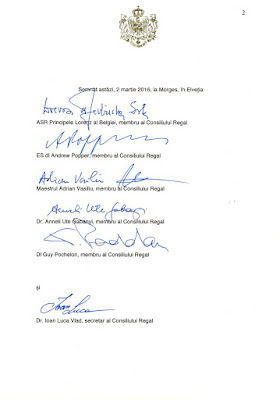 2
Semnat astăzi, 2 martie 2016, la Morges, în Elveția
ASR Principele Lorenz al Belgiei, membru al Consiliului Regal
ES dl Andrew Popper, membru al Consiliului Regal
Adrian Vasiliu
Maestrul Adrian Vasiliu, membru al Consiliului Regal
Anneli Ute Gabanyi
Dr. Anneli Ute Gabanyi, membru al Consiliului Regal
Dl Guy Pochelon, membru al Consiliului Regal
și
Ioan Luca
Dr. Ioan Luca Vlad, secretar al Consiliului Regal